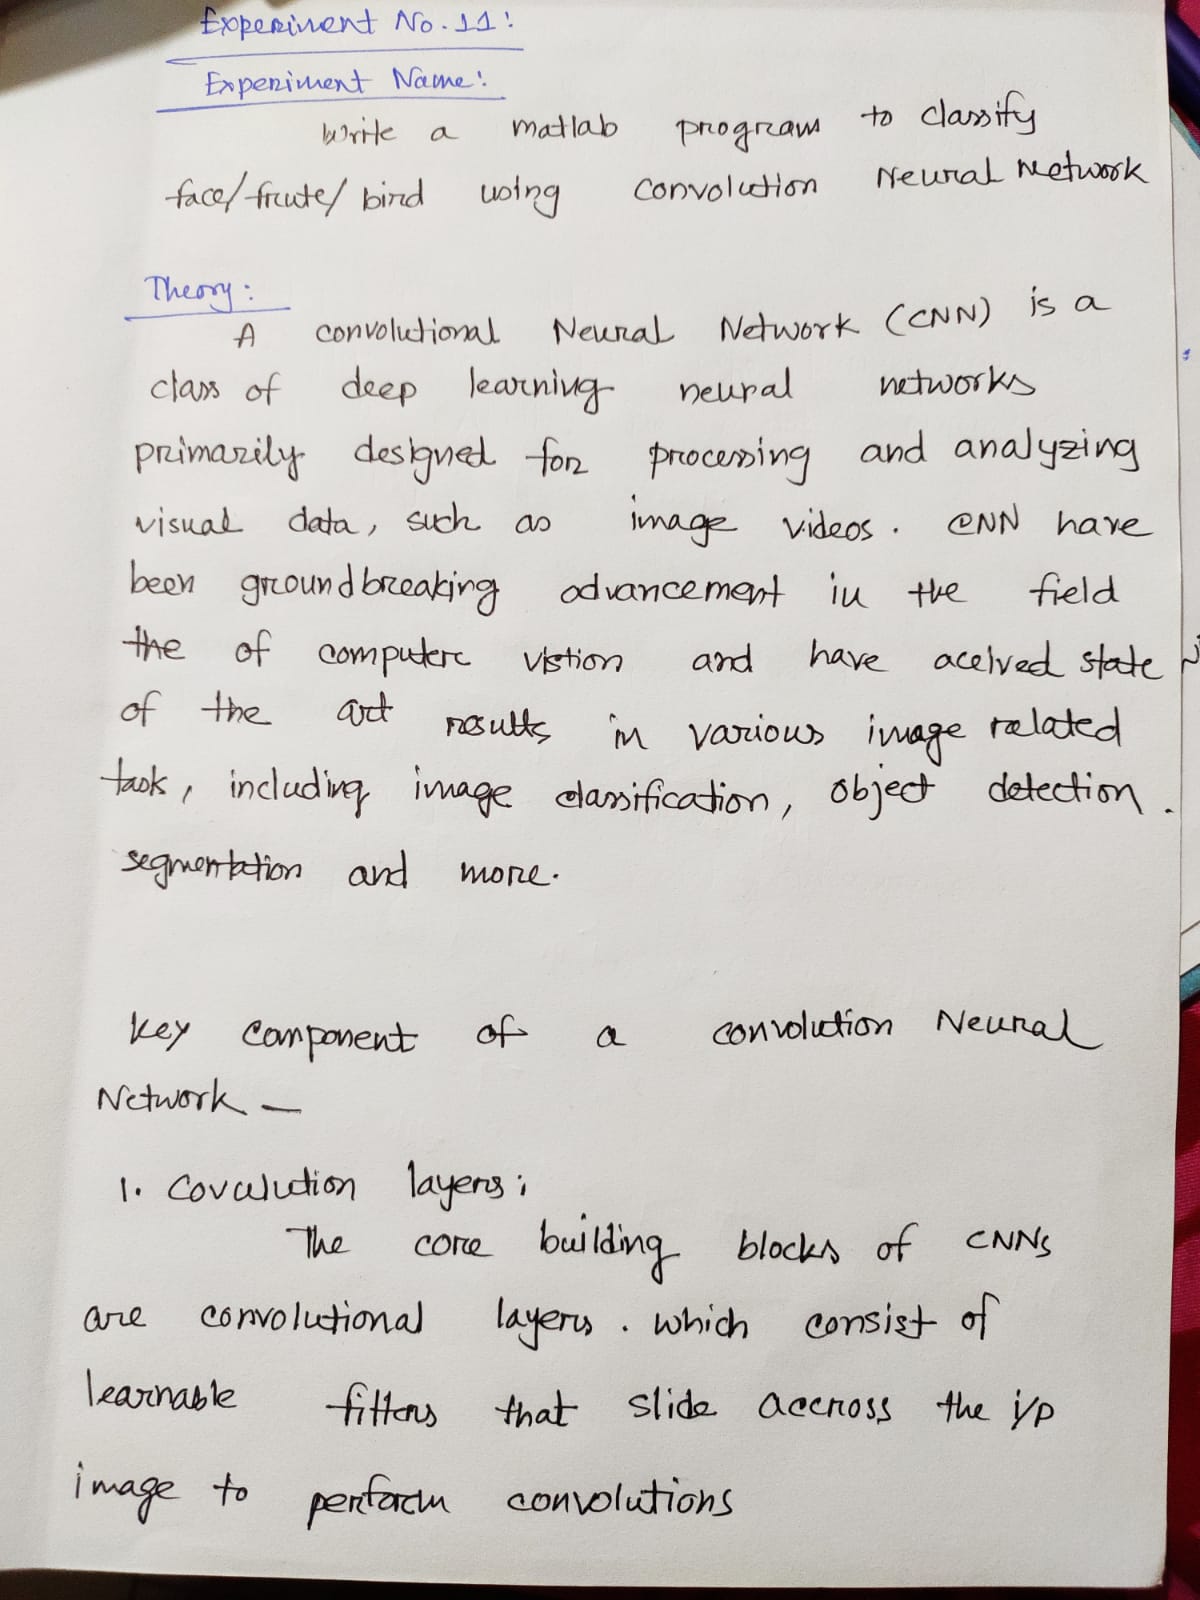 Experiment No. 11:
Experiment Name:
Write a matlab program to classify
face/frute/bird using convolution Neural Network
Theory:
A convolutional Neural Network (CNN) is a
class of deep learning neural networks
primarily designed for processing and analyzing
visual data, such as image videos. CNN have
been groundbreaking advancement in the field
the of computere vistion and have aceived state
of the art results in various image related
task, including image classification, object detection.
segmentation and more.
Key component of a convolution Neural
Network —
1. Covalution layers;
The core building blocks of CNNs
are convolutional layers. which consist of
learnable filters that slide accross the i/p
image to perform convolutions